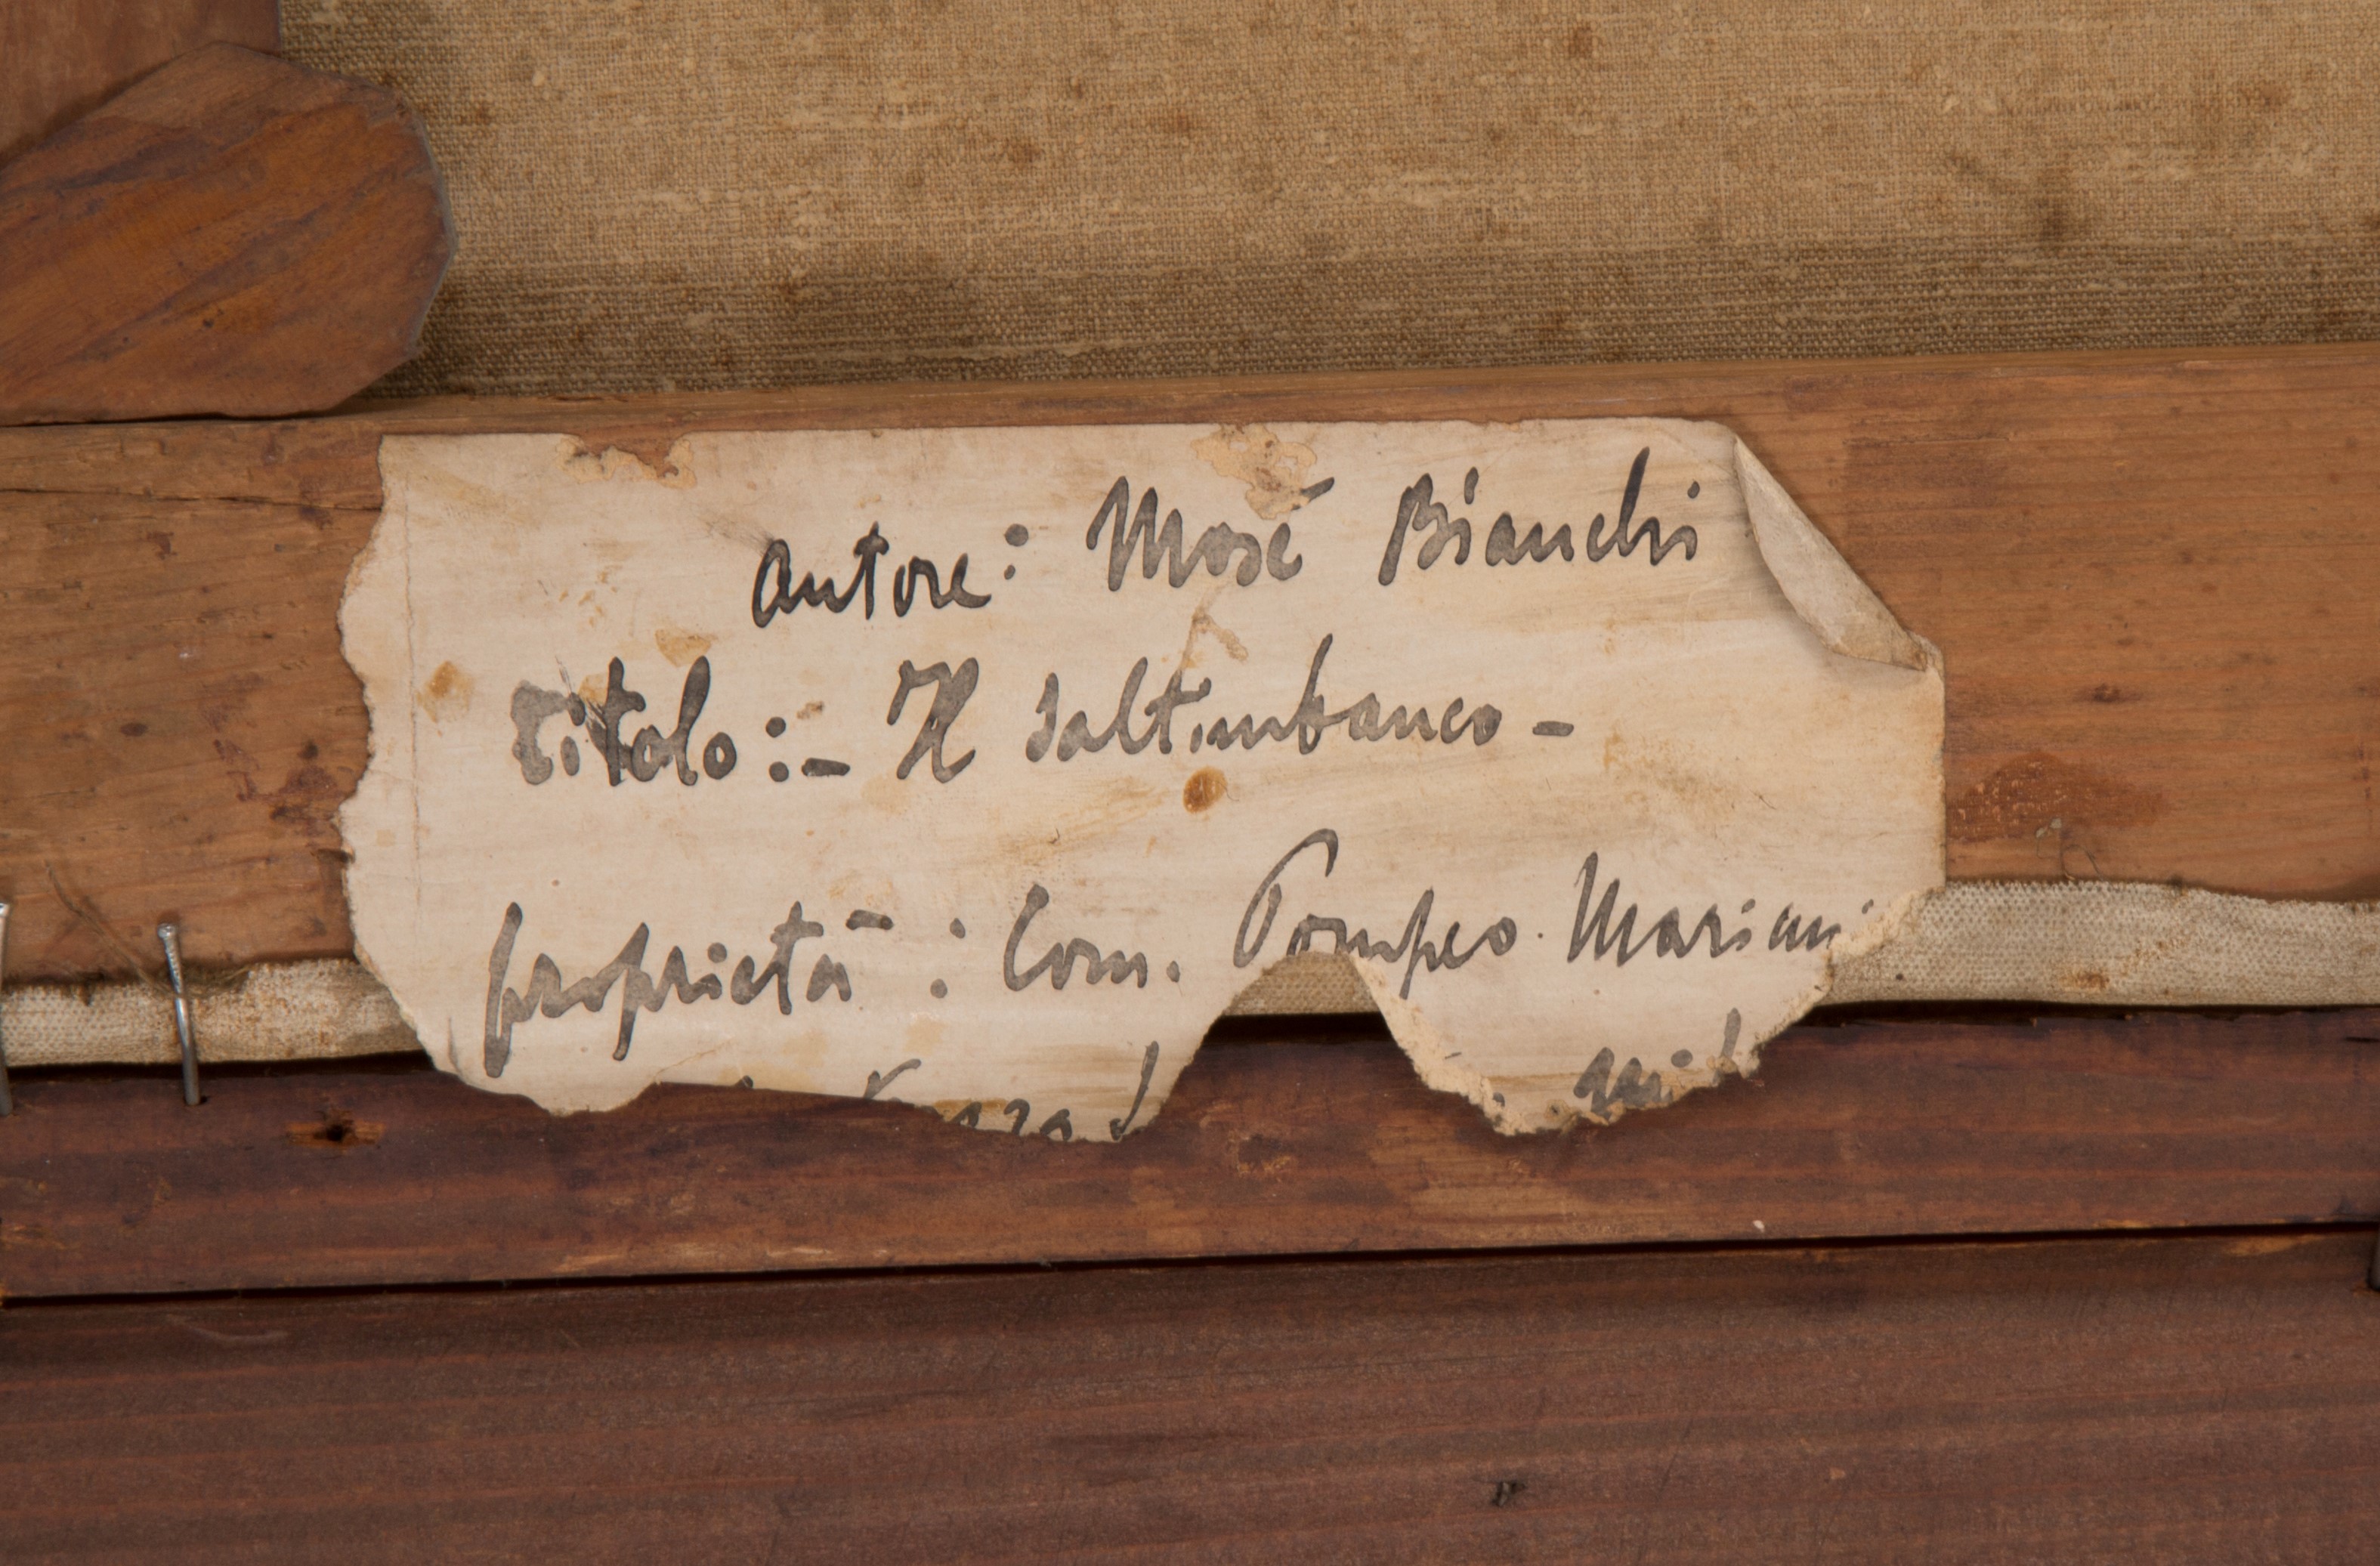 autore: Mosé Bianchi
Titolo:- Il Saltimbanco -
proprietà: Com. Pompeo Mariani